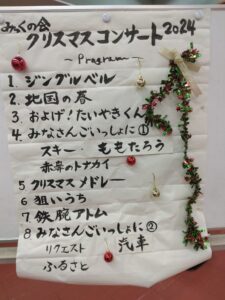 みくの会
クリスマスコンサート2024
~Program~
1. ジングルベル
2. 北国の春
3. およげ!たいやきくん
4. みなさんごいっしょに①
スキー・ももたろう
赤鼻のトナカイ
5 クリスマスメドレー
6 狙いうち
7. 鉄腕アトム
8. みなさんごいっしょに②
リクエスト 汽車
ふるさと